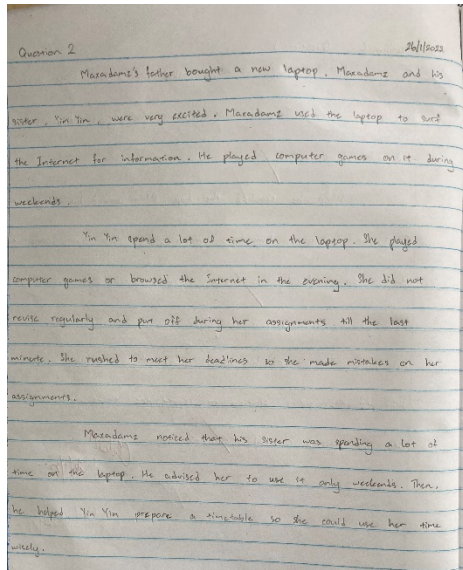 Question 2 26/1/2022
Maxadamz's father bought a new laptop. Maxadamz and his
sister, Yin Yin, were very excited. Maxadamz used the laptop to surf
the Internet for information. He played computer games on it during
weekends.
Yin Yin spend a lot of time on the laptop. She played
computer games or browsed the Internet in the evening. She did not
revise regularly and put off during her assignments till the last
minute. She rushed to meet her deadlines so she made mistakes on her
assignments.
Maxadamz noticed that his sister was spending a lot of
time on the laptop. He advised her to use it only weekends. Then,
he helped Yin Yin prepare a timetable so she could use her time
wisely.